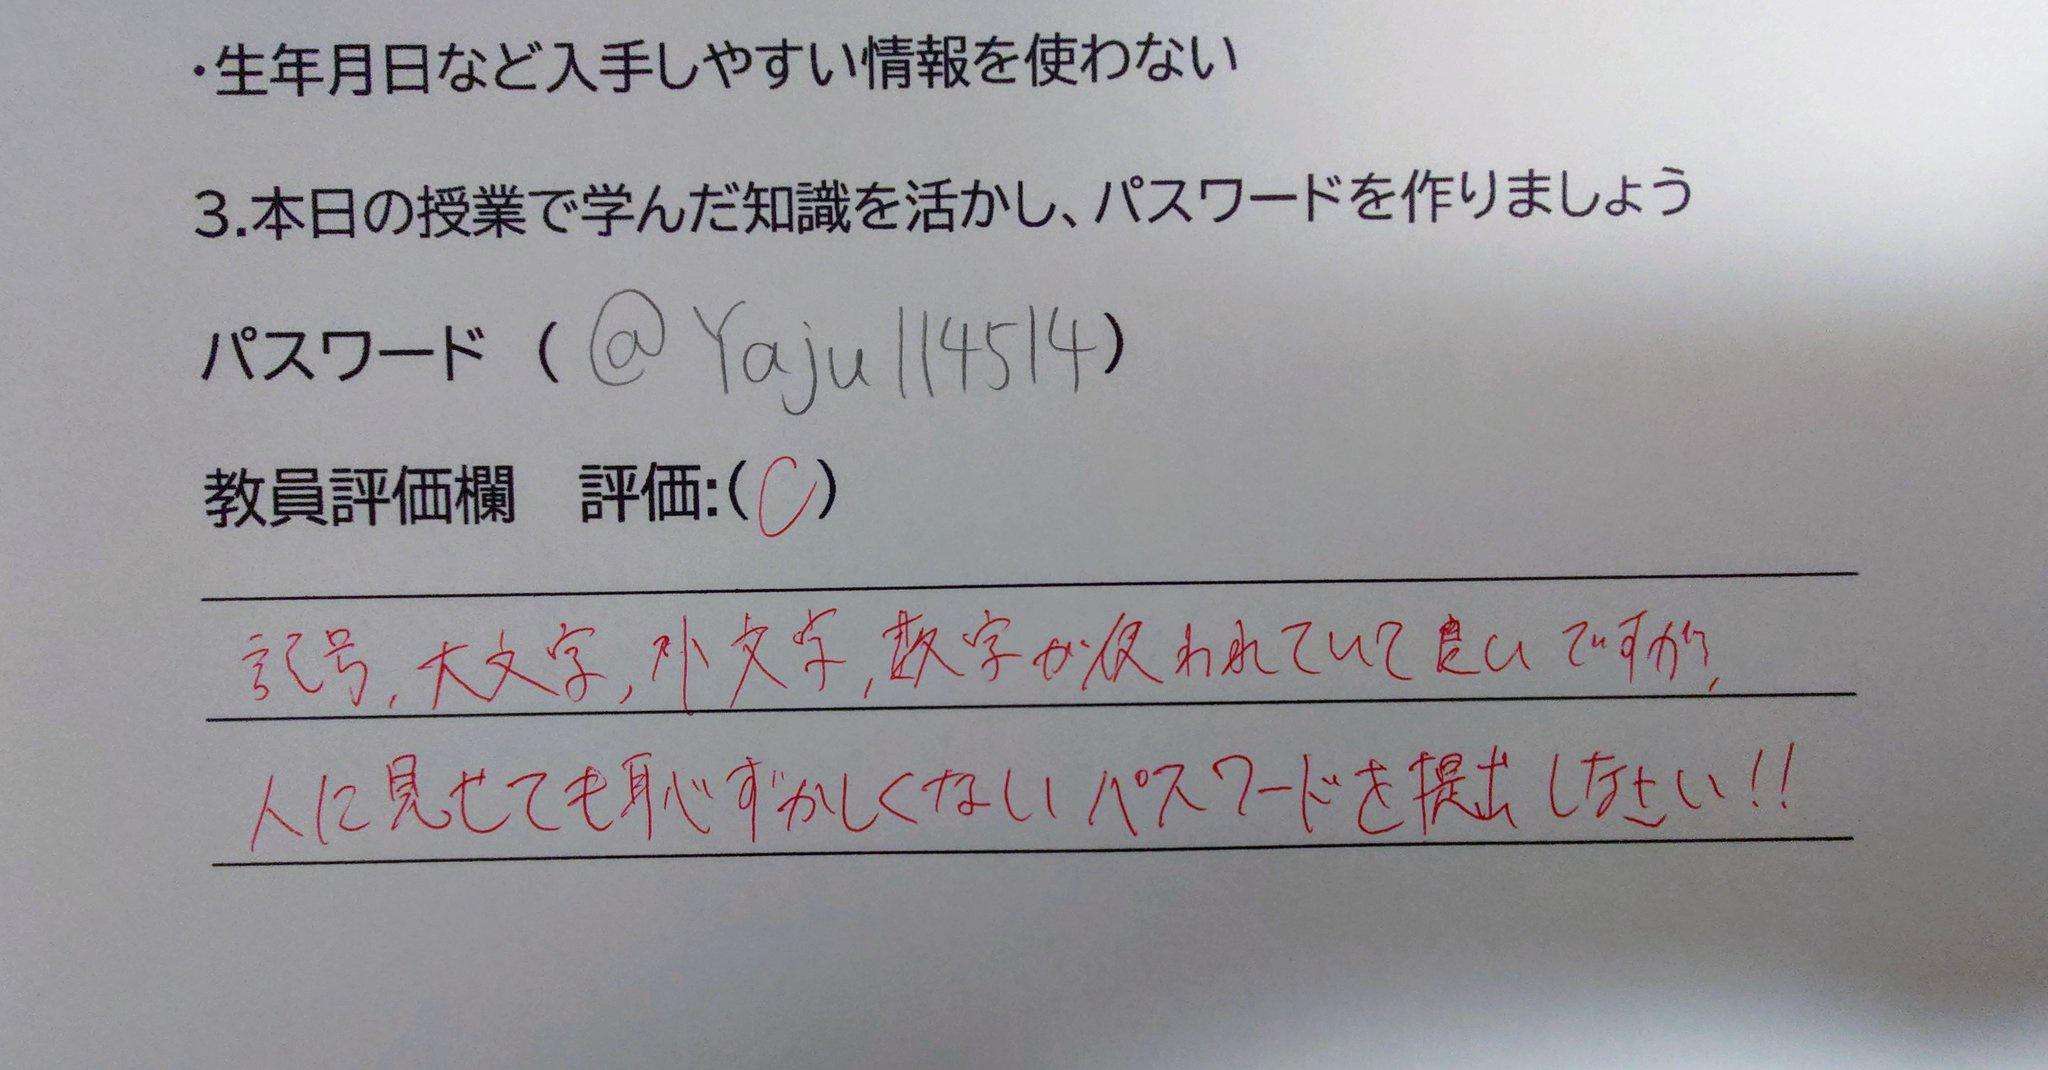 ・生年月日など入手しやすい情報を使わない
3.本日の授業で学んだ知識を活かし、パスワードを作りましょう
パスワード （ @Yaju114514）
教員評価欄　評価:(C)
記号,大文字,小文字,数字が使われていて良いですが,
人に見せても恥ずかしくないパスワードを提出しなさい!!